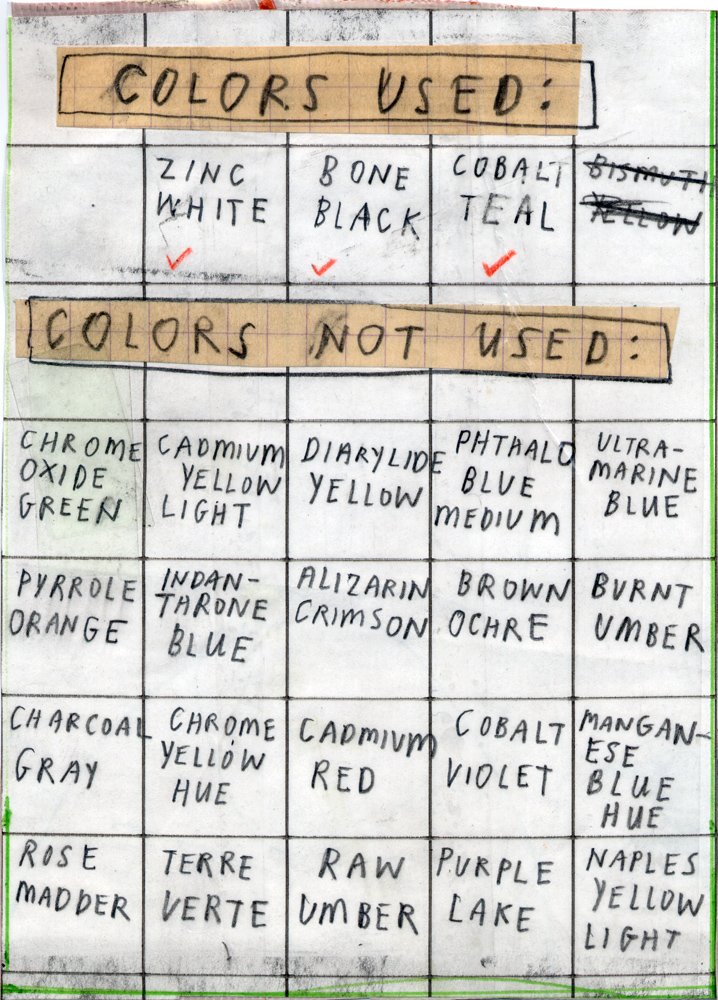 COLORS USED:
ZINC
WHITE
BONE
BLACK
COBALT
TEAL
BISMUTH
YELLOW
COLORS NOT USED:
CHROME
OXIDE
GREEN
CADMIUM
YELLOW
LIGHT
DIARYLIDE
YELLOW
PHTHALO
BLUE
MEDIUM
ULTRA-
MARINE
BLUE
PYRROLE
ORANGE
INDAN-
THRONE
BLUE
ALIZARIN
CRIMSON
BROWN
OCHRE
BURNT
UMBER
CHARCOAL
GRAY
CHROME
YELLOW
HUE
CADMIUM
RED
COBALT
VIOLET
MANGAN-
ESE
BLUE
HUE
ROSE
MADDER
TERRE
VERTE
RAW
UMBER
PURPLE
LAKE
NAPLES
YELLOW
LIGHT